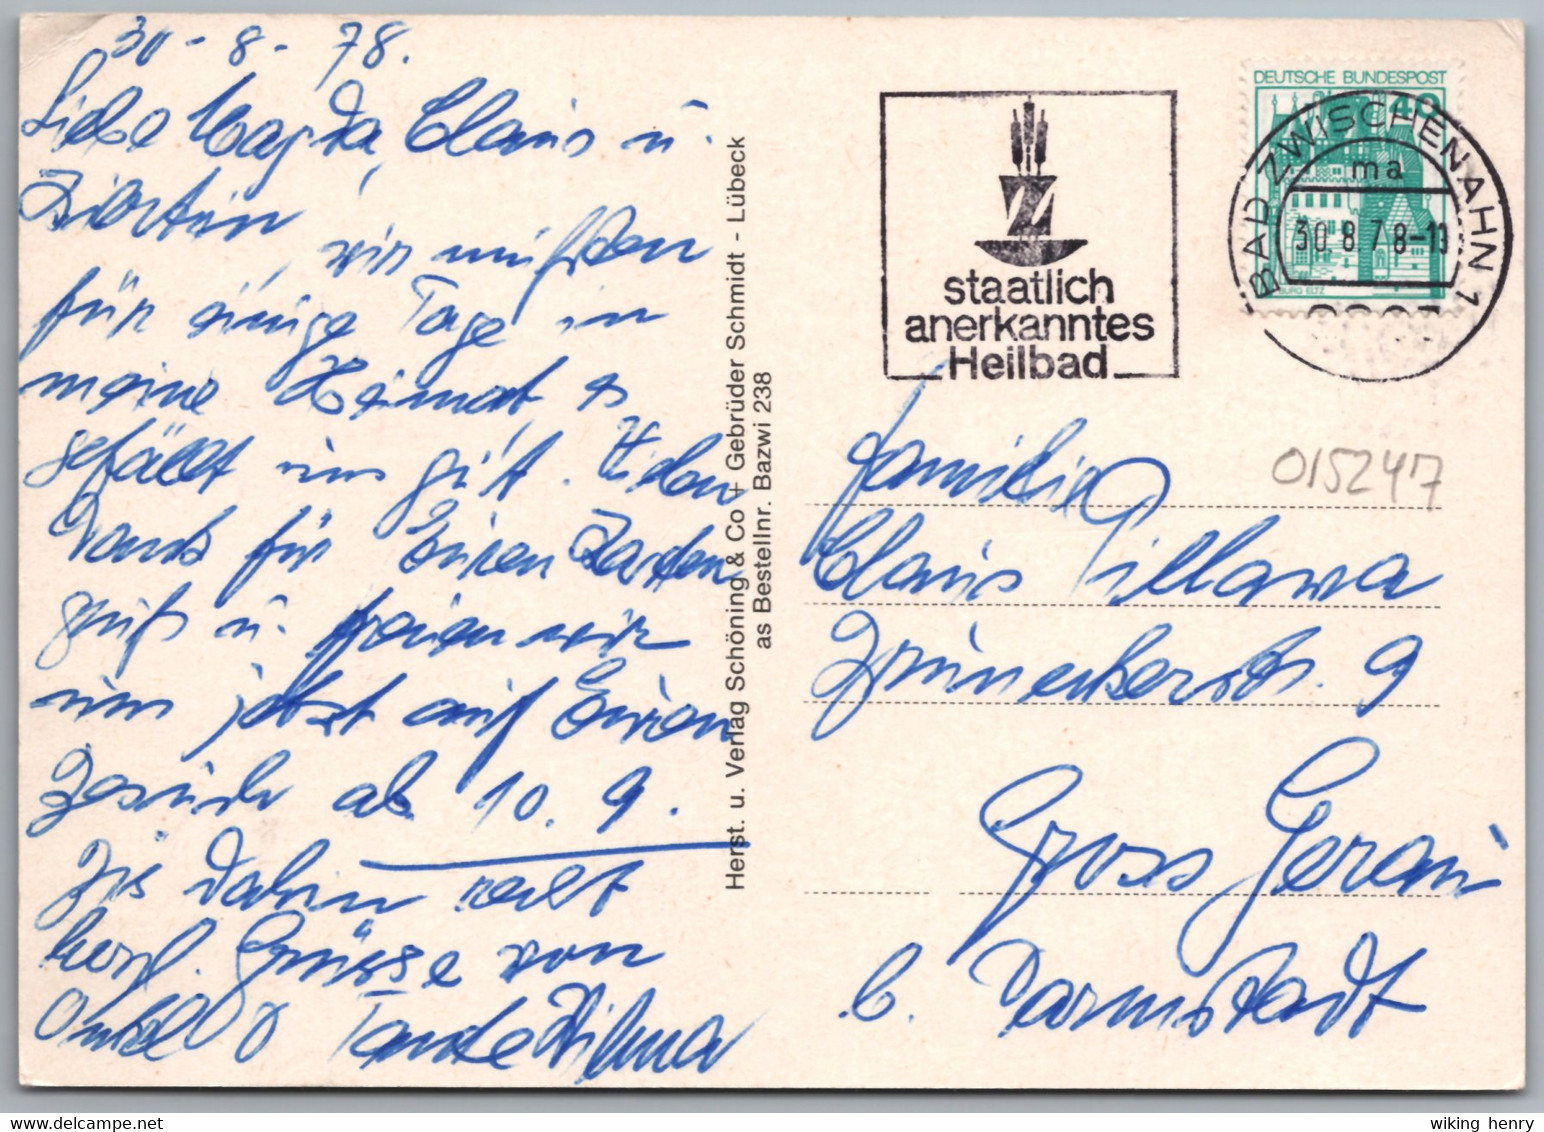 30-8-78.
Liebe Magda, Claus u.
wir mußten
für einige Tage in
meine Heimat es
gefällt uns gut. Vielen
Dank für Euren Karten
gruß u. freuen wir
uns jetzt auf Euren
Besuch ab 10.9.
Bis dahin recht
herzl. Grüsse von
Onkel u Tante Wilma
Herst. u. Verlag Schöning & Co + Gebrüder Schmidt - Lübeck
as Bestellnr. Bazwi 238
staatlich
anerkanntes
Heilbad
DEUTSCHE BUNDESPOST
40
BURG ELTZ
BAD ZWISCHENAHN 1
ma
30.8.78-13
015247
Familie
Claus Pillawa
9
Gross Gerau
b. Darmstadt
wiking henry